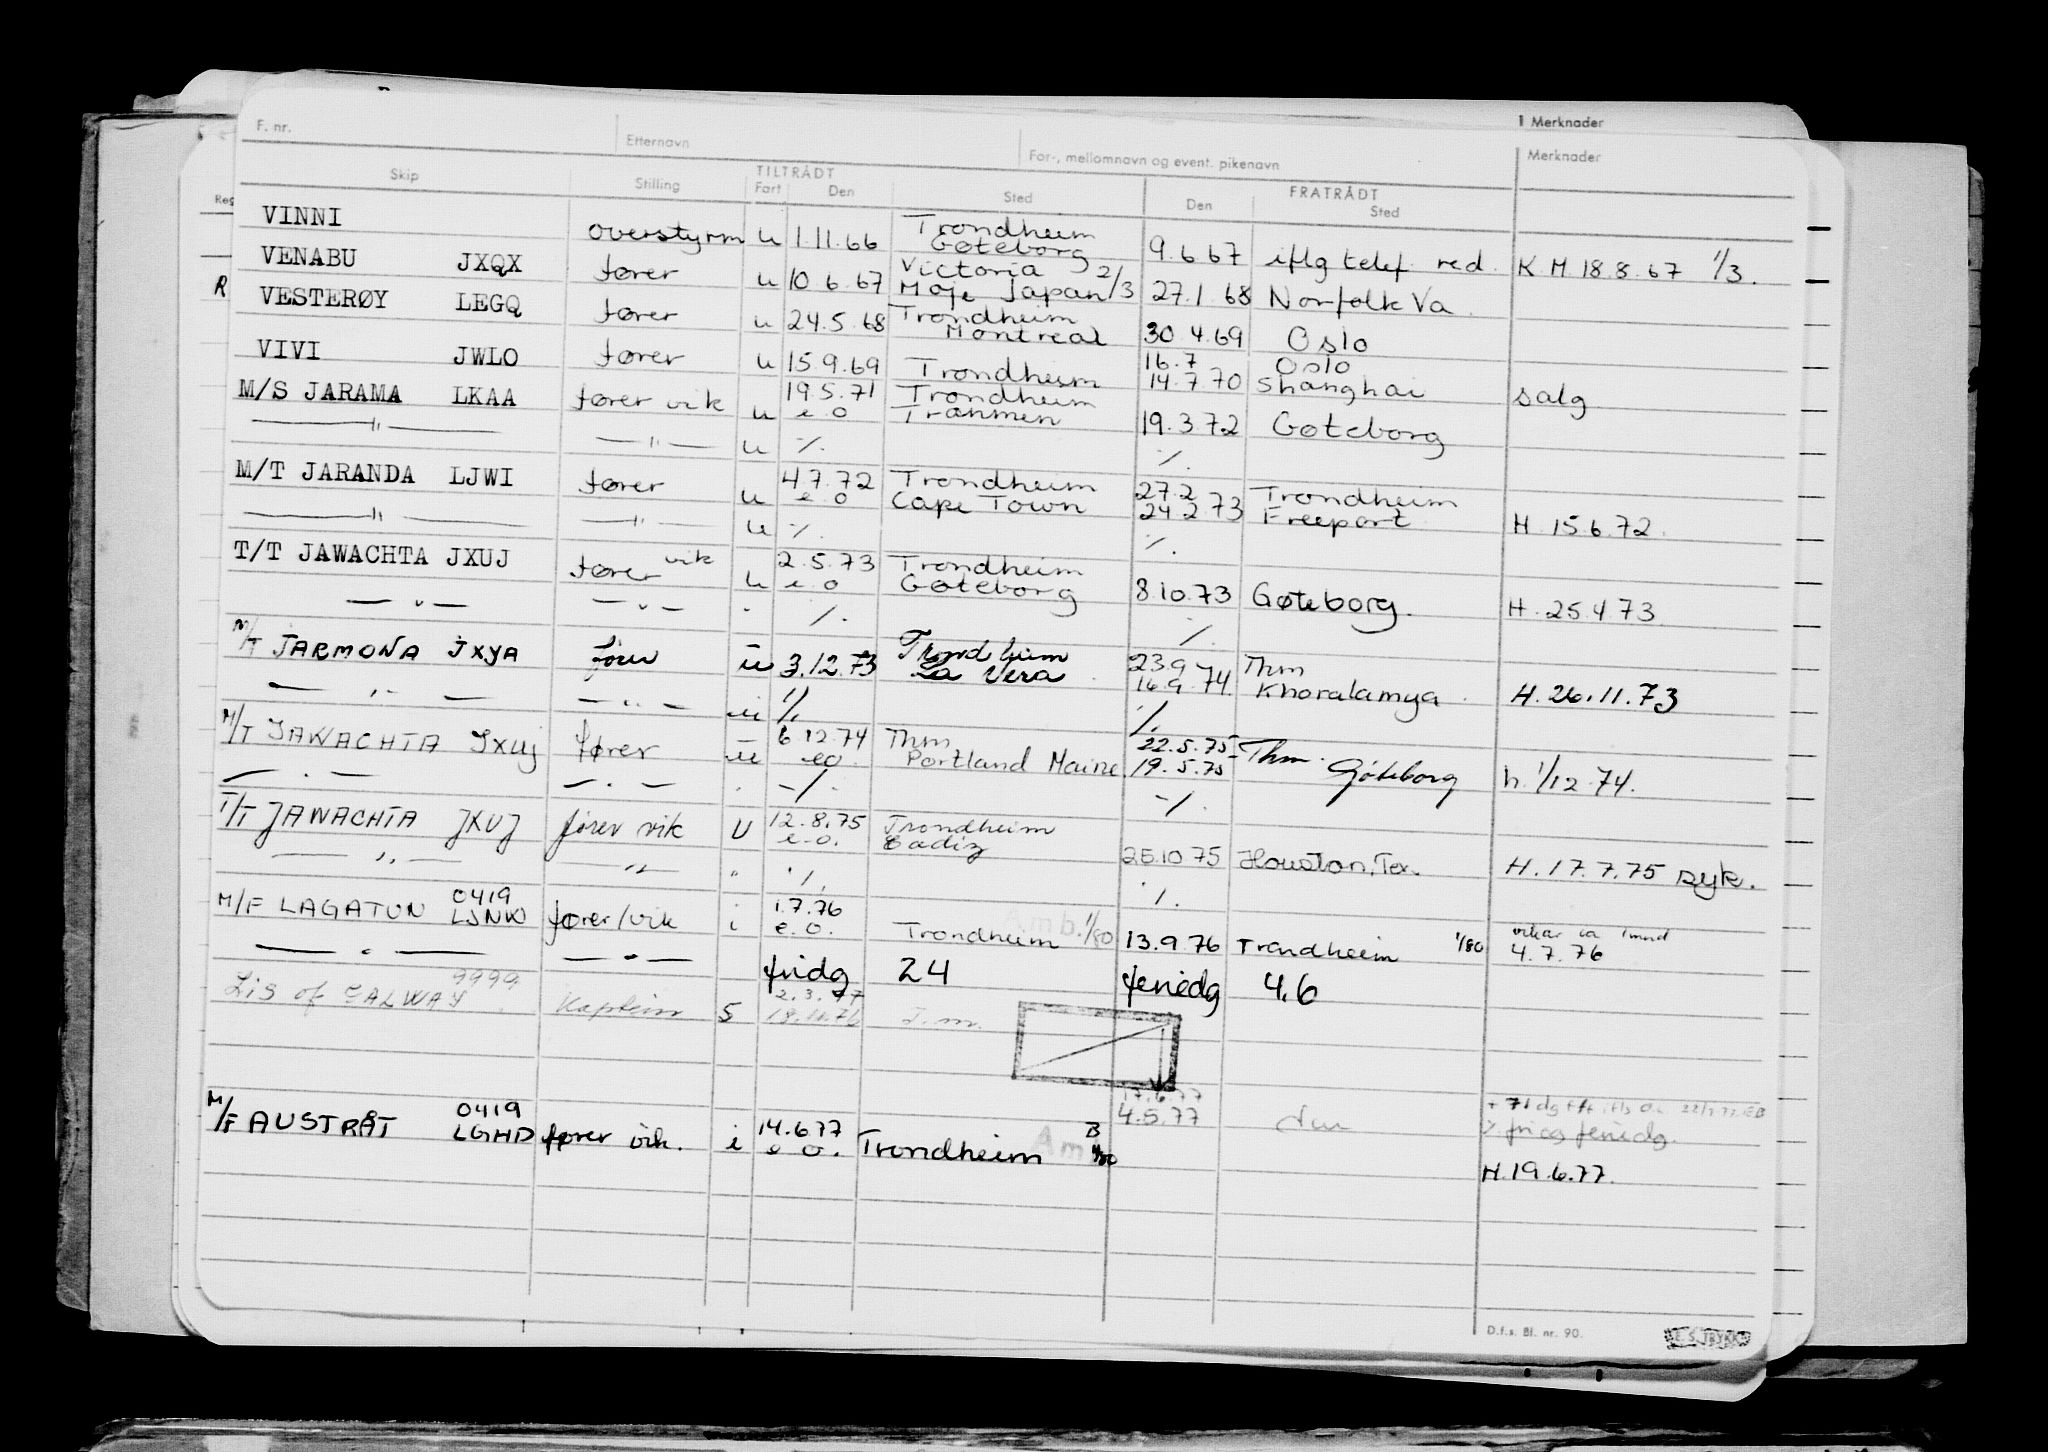 1 Merknader
F. nr. Etternavn For-, mellomnavn og event. pikenavn Merknader
Skip Stilling TILTRÅDT FRATRÅDT
Reg Fart Den Sted Den Sted
VINNI overstyrm u 1.11.66 Trondheim Gøteborg 9.6.67 iflg telef. red. K M 18.8.67 1/3.
VENABU JXQX fører u 10.6.67 Victoria 2/3 Moje Japan/3 27.1.68 Norfolk Va
R VESTERØY LEGQ fører u 24.5.68 Trondheim Montreal 30.4.69 Oslo
VIVI JWLO fører u 15.9.69 Trondheim 16.7 Oslo
14.7.70 Shanghai salg
M/S JARAMA LKAA fører vik u 19.5.71 e.o Trondheim 19.3.72 Gøteborg
—"— —"— u ./. ./.
M/T JARANDA LJWI fører u 4.7.72 e.o Trondheim Cape Town 27.2 24.2.73 Trondheim Freeport H. 15.6.72.
—"— —"— u ./. ./.
T/T JAWACHTA JXUJ fører vik u 2.5.73 e.o Trondheim Gøteborg 8.10.73 Gøteborg. H. 25.4.73
—"— —"— ./. ./.
M/T JARMONA JXYA fører u 3.12.73 Trondheim La Vera 23.9 16.9.74. Thm Khoralamya. H. 26.11.73
—"— —"— u ./. ./.
M/T JAWACHTA JXUJ fører u 6.12.74 eo. Thm Portland Maine 22.5.75 19.5.75 Thm. Göteborg h. 1/12.74.
—"— —"— ./. ./.
T/T JAWACHTA JXUJ fører vik U 12.8.75 e.o. Trondheim Cadiz 25.10.75 Houston, Tex. H. 17.7.75 syk.
—"— —"— " ./. ./.
M/F LAGATUN 0419 LJNW fører/vik i 1.7.76 e.o. Trondheim Amb. 1/80 13.9.76 Trondheim 1/80 vikar ca 1 mnd 4.7.76
—"— —"— fridg 24 feriedg 4.6
Lis of GALWAY 9999 Kaptein S 2.3.77 18.11.76 T.m.
17.6.77 4.5.77 + 71 dg 22/7-77 EB ./. fri og feriedg.
M/F AUSTRÅT 0419 LGHD fører vik. i 14.6.77 e o. Trondheim Am B 1/80 H. 19.6.77.
D.f.s. Bl. nr. 90. E. S. TRYKK